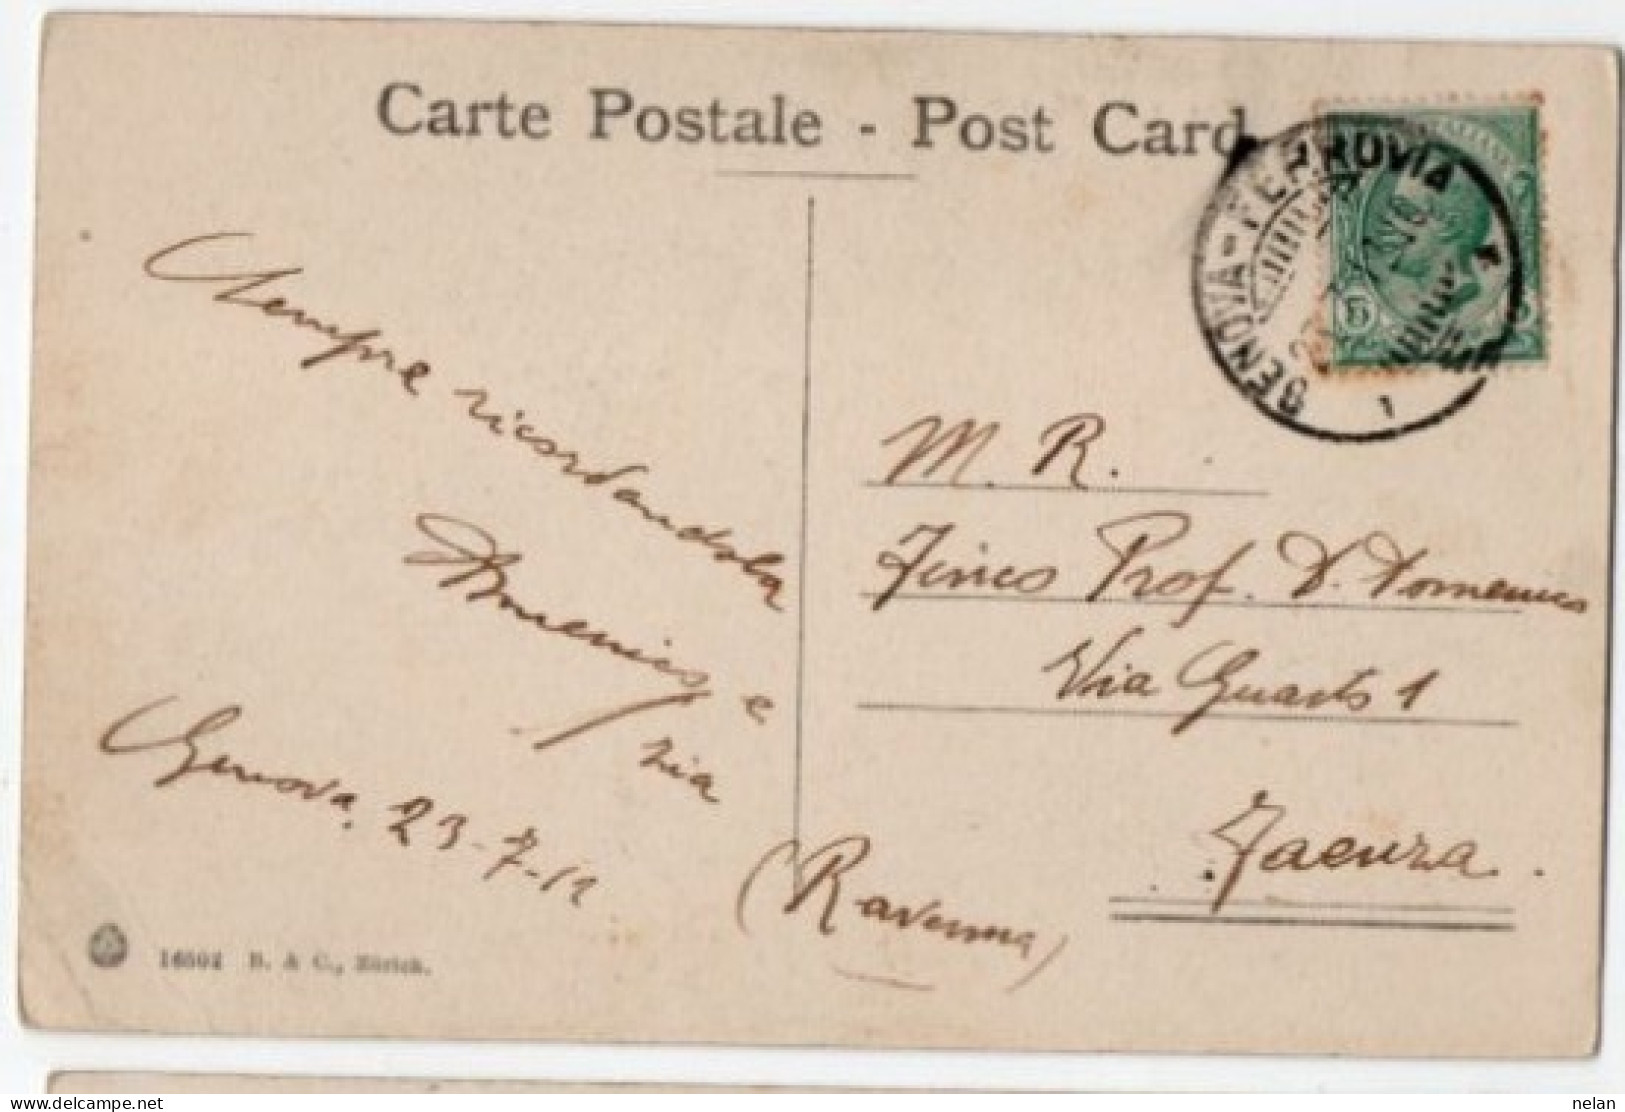 Carte Postale - Post Card
GENOVA-FERROVIA
5
1
Sempre ricordandola
e
zia
Genova. 23-7-12
M. R.
Prof. D. Domenico
Via 1
Faenza.
(Ravenna)
16502 B. & C., Zürich.
delcampe.net
nelan